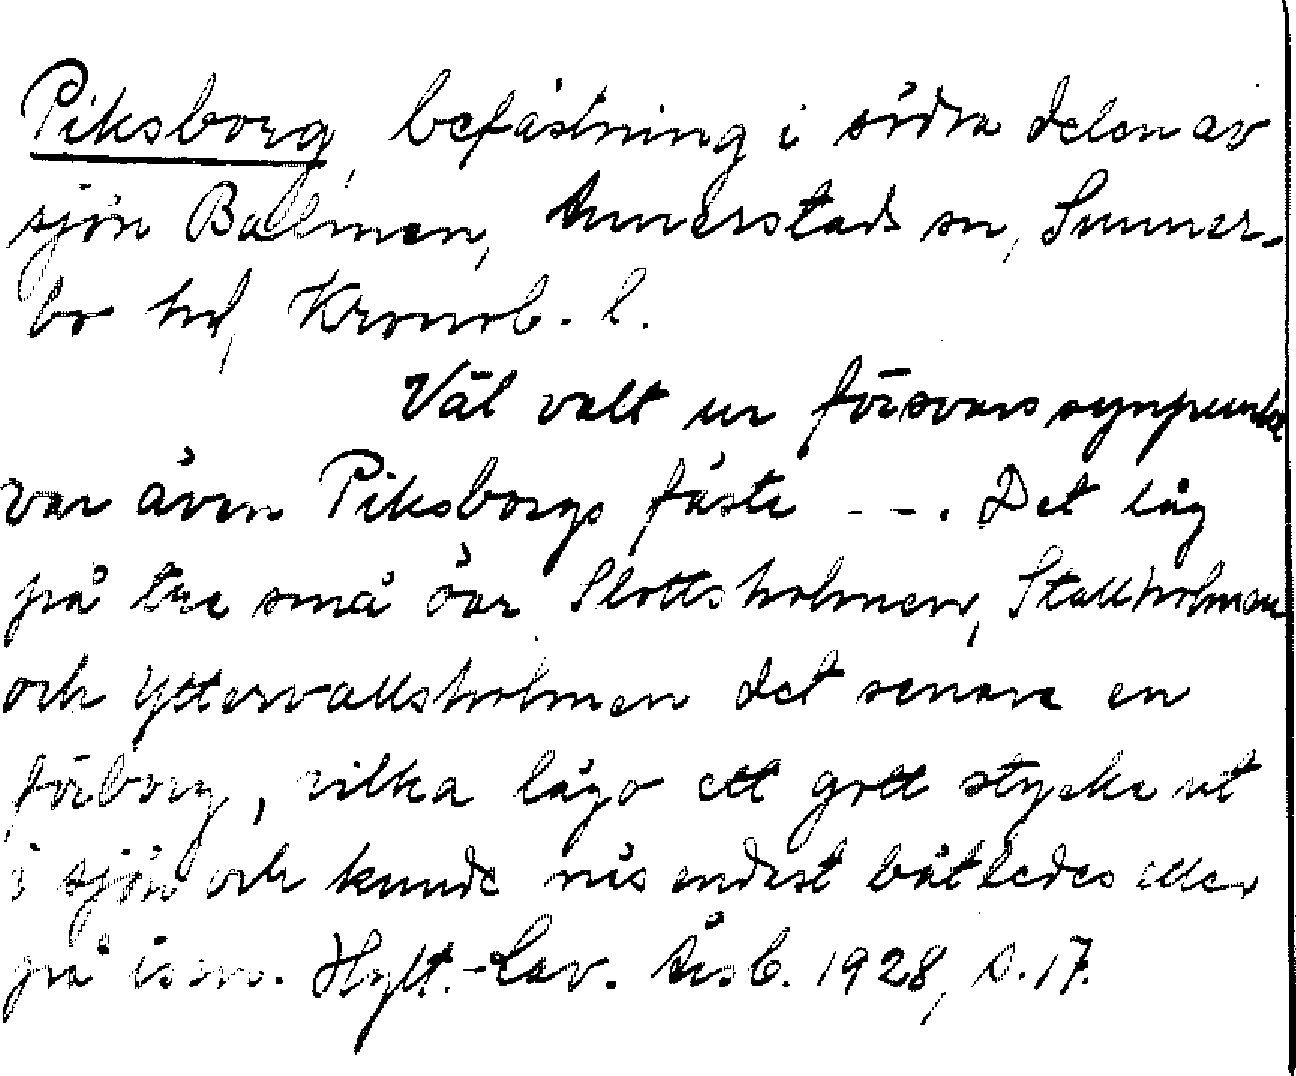 Piksborg, befästning i södra delen av
sjön Bolmen, Annerstads sn, Sunner-
bo hd, Kronob. l.
Väl valt ur försvarssynpunkt
var även Piksborgs fäste - - . Det låg
på tre små öar Slottsholmen, Stallholmen
och Yttervallsholmen det senare en
förborg, vilka lågo ett gott stycke ut
i sjön och kunde nås endast båtledes eller
på isen. Hylt.-Cav. Årsb. 1928, s. 17.